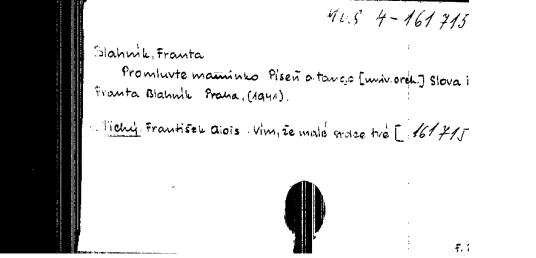 Mus 4-161 715
Blahník, Franta
Promluvte maminko Píseň a tango [univ. orch.] Slova i
Franta Blahník Praha, (1941).
Tichý František Alois. Vím, že malé srdce tvé [ 161 715
F. 1